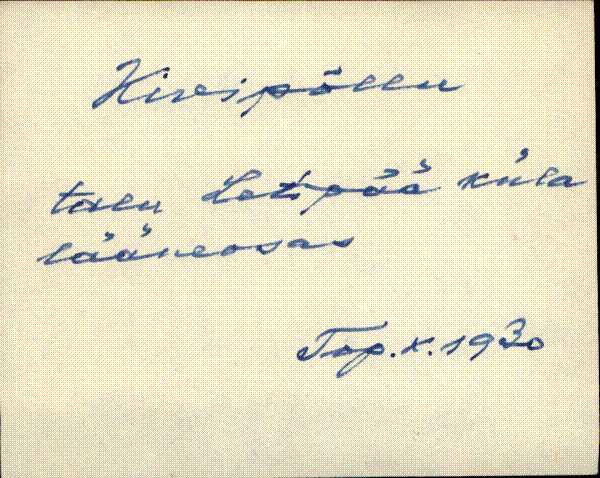 Kivipõllu
talu Leipää küla
lääneosas
Top.k.1930